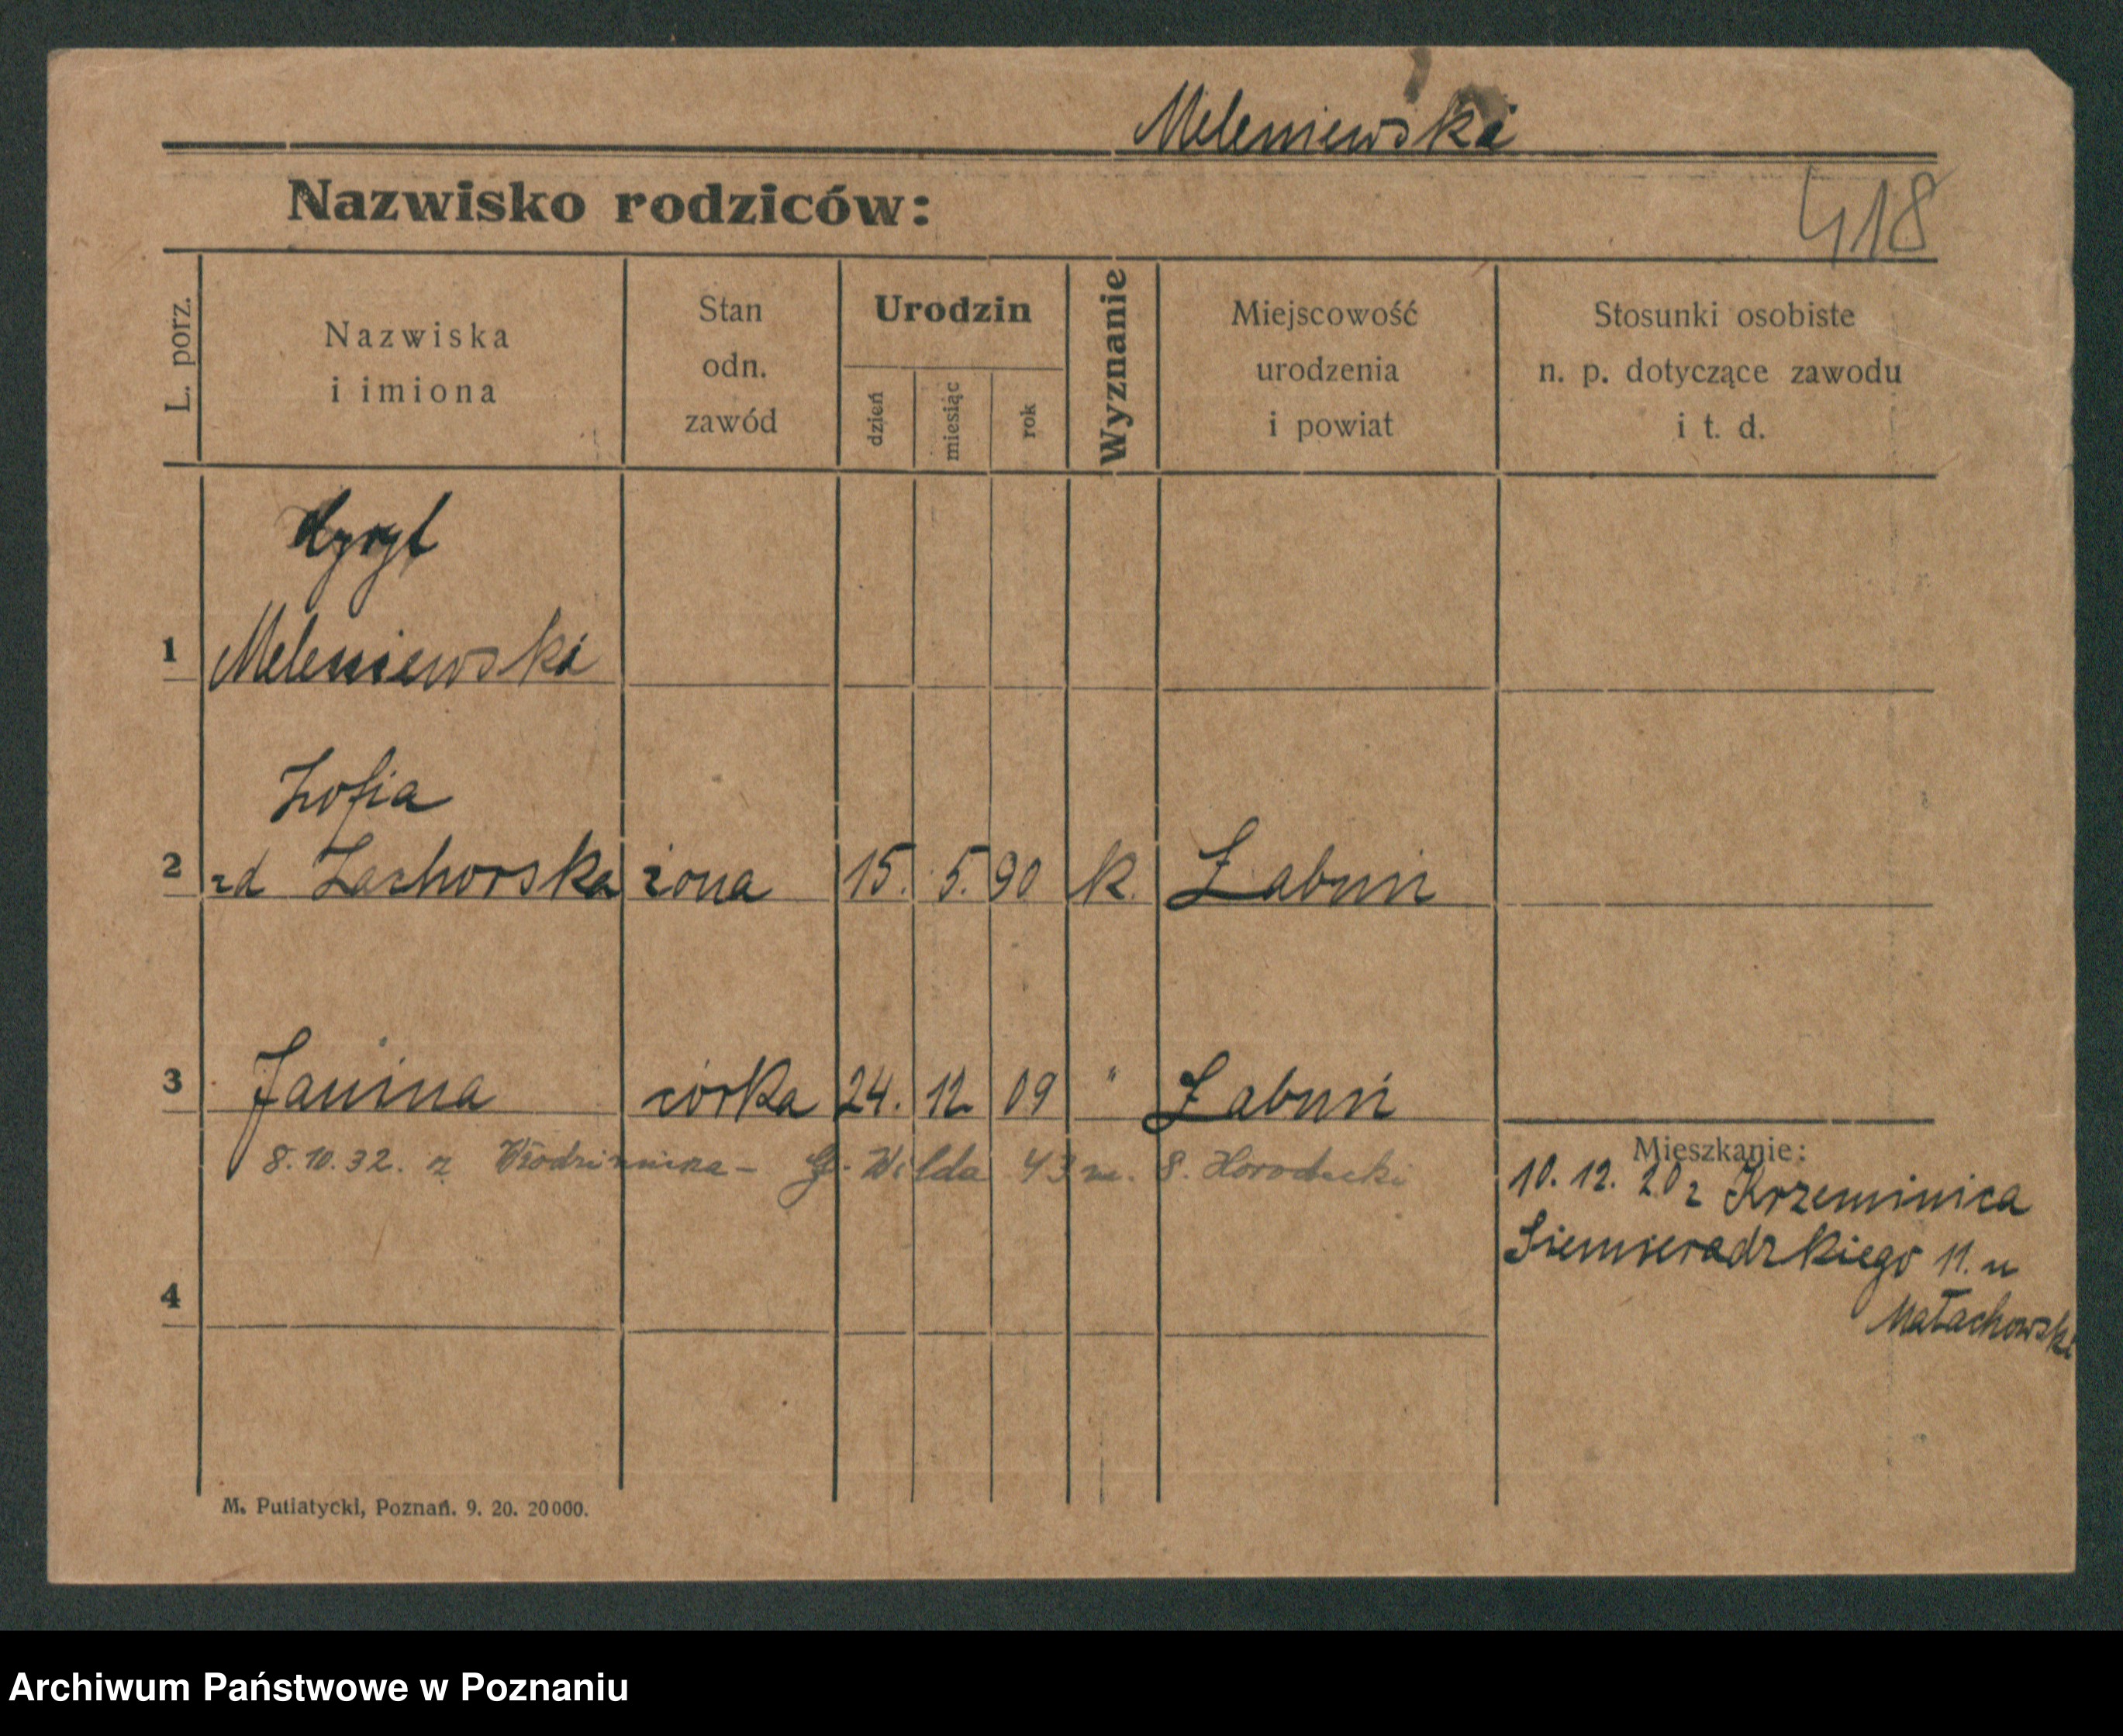 Meleniewski
Nazwisko rodziców:
418
L. porz.
Nazwiska
i imiona
Stan
odn.
zawód
Urodzin
dzień
miesiąc
rok
Wyznanie
Miejscowość
urodzenia
i powiat
Stosunki osobiste
n. p. dotyczące zawodu
i t. d.
1
Meleniewski
Zofia
2 zd Zachorska żona 15. 5. 90 k. Łabuń
3 Janina córka 24. 12 09 " Łabuń
8.10.32. z G. Wilda 43 m. 8. Horodecki
Mieszkanie:
10. 12. 20 z Krzemieńca
Siemieradzkiego 11. u
Małachowski
4
M. Putiatycki, Poznań. 9. 20. 20000.
Archiwum Państwowe w Poznaniu